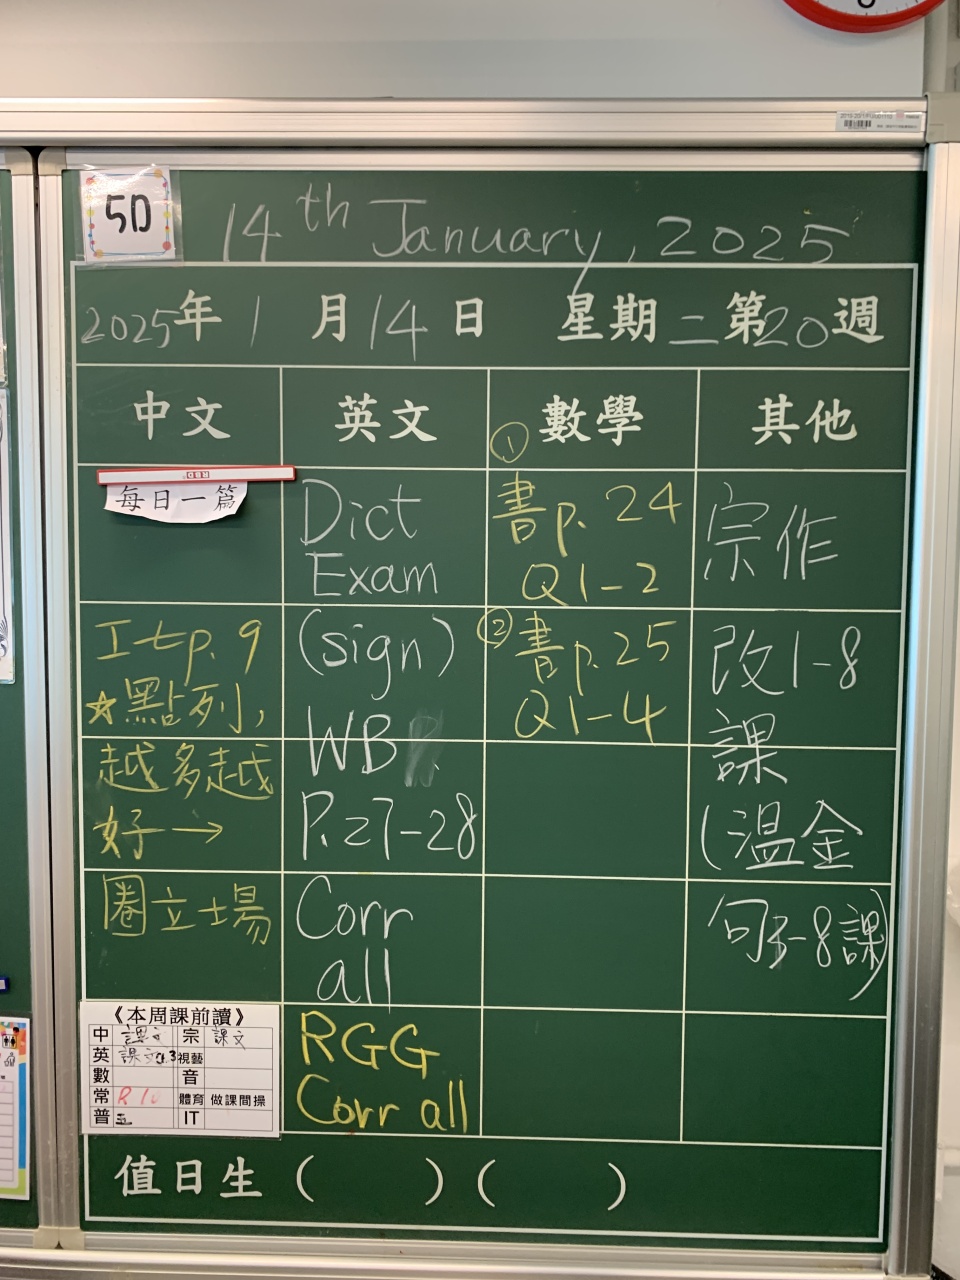 5D
14th January, 2025
2025年 1 月 14 日 星期 二 第20週
中文
每日一篇
工七p.9
☆點列,
越多越
好→
圈立士場
英文
Dict
Exam
(sign)
WB
P.27-28
Corr
all
RGG
Corr all
數學
① 書p.24
Q1-2
② 書p.25
Q1-4
其他
宗作
改1-8
課
(溫金
句3-8課)
《本周課前讀》
中 課文 宗 課文
英 課文 視藝
數 音
常 體育 做課間操
普 五 IT
值日生 ( ) ( )